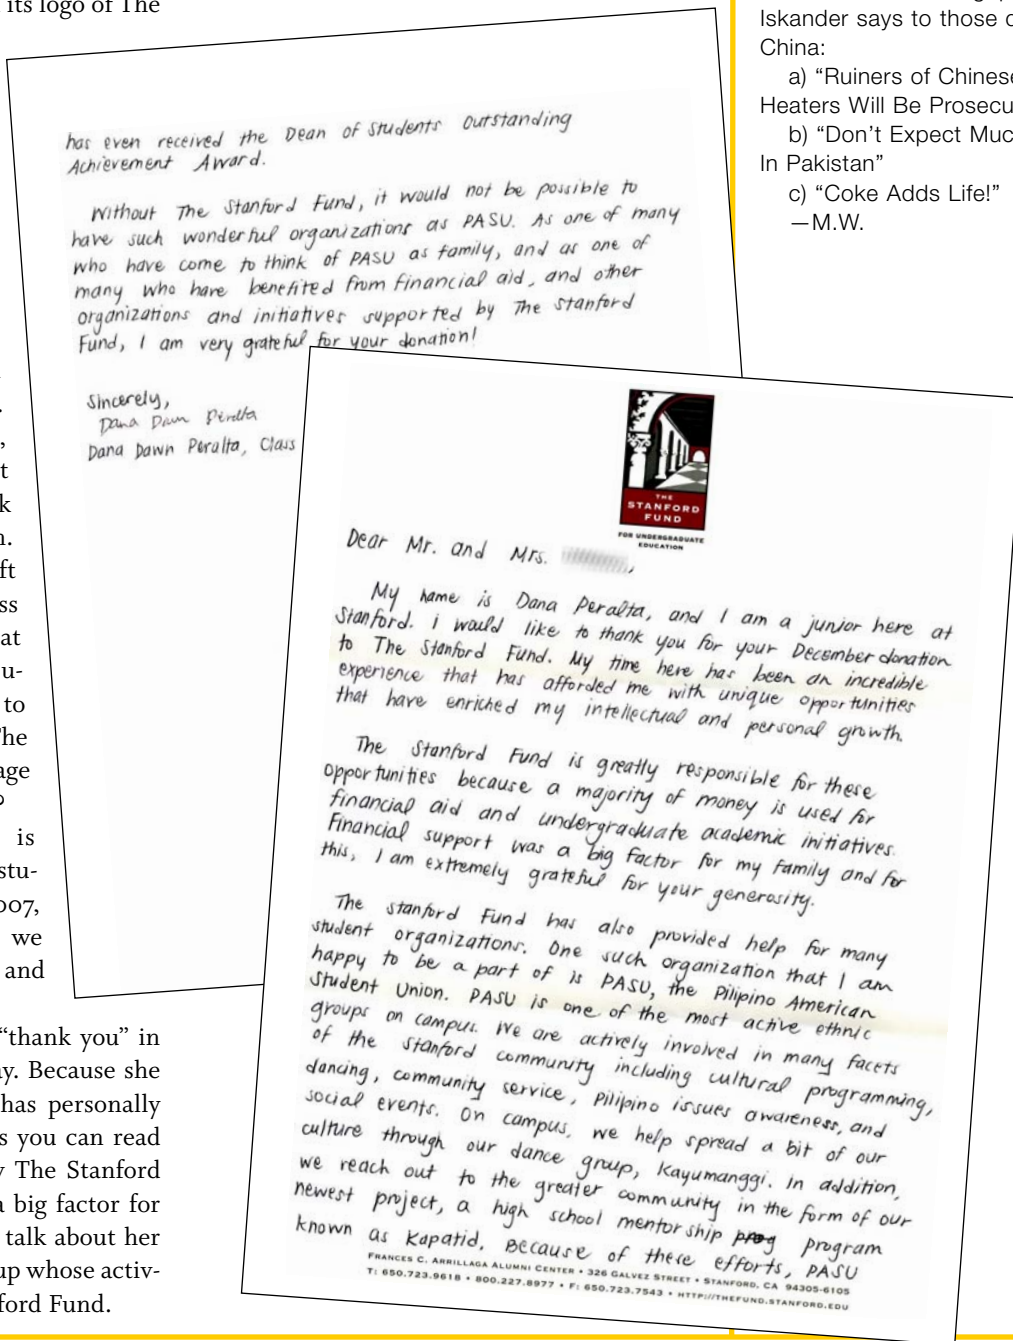 its logo of The
ft
ss
at
u-
to
The
age
?
is
stu-
007,
we
and
“thank you” in
ay. Because she
has personally
s you can read
y The Stanford
a big factor for
talk about her
up whose activ-
ford Fund.
Iskander says to those
China:
a) “Ruiners of Chinese
Heaters Will Be Prosecu
b) “Don’t Expect Muc
In Pakistan”
c) “Coke Adds Life!”
—M.W.
has even received the Dean of Students Outstanding
Achievement Award.
Without The Stanford Fund, it would not be possible to
have such wonderful organizations as PASU. As one of many
who have come to think of PASU as family, and as one of
many who have benefited from financial aid, and other
organizations and initiatives supported by The Stanford
Fund, I am very grateful for your donation!
Sincerely,
Dana Dawn Peralta
Dana Dawn Peralta, Class
THE
STANFORD
FUND
FOR UNDERGRADUATE
EDUCATION
Dear Mr. and Mrs. ,
My name is Dana Peralta, and I am a junior here at
Stanford. i would like to thank you for your December donation
to The Stanford Fund. My time here has been an incredible
experience that has afforded me with unique opportunities
that have enriched my intellectual and personal growth.
The Stanford Fund is greatly responsible for these
opportunities because a majority of money is used for
financial aid and undergraduate academic initiatives.
Financial support was a big factor for my family and for
this, I am extremely grateful for your generosity.
The Stanford Fund has also provided help for many
student organizations. One such organization that I am
happy to be a part of is PASU, the Pilipino American
Student Union. PASU is one of the most active ethnic
groups on campus. We are actively involved in many facets
of the Stanford community including cultural programming,
dancing, community service, Pilipino issues awareness, and
social events. On campus, we help spread a bit of our
culture through our dance group, Kayumanggi. In addition,
we reach out to the greater community in the form of our
newest project, a high school mentorship prog program
known as Kapatid. Because of these efforts, PASU
FRANCES C. ARRILLAGA ALUMNI CENTER • 326 GALVEZ STREET • STANFORD, CA 94305-6105
T: 650.723.9618 • 800.227.8977 • F: 650.723.7543 • HTTP://THEFUND.STANFORD.EDU